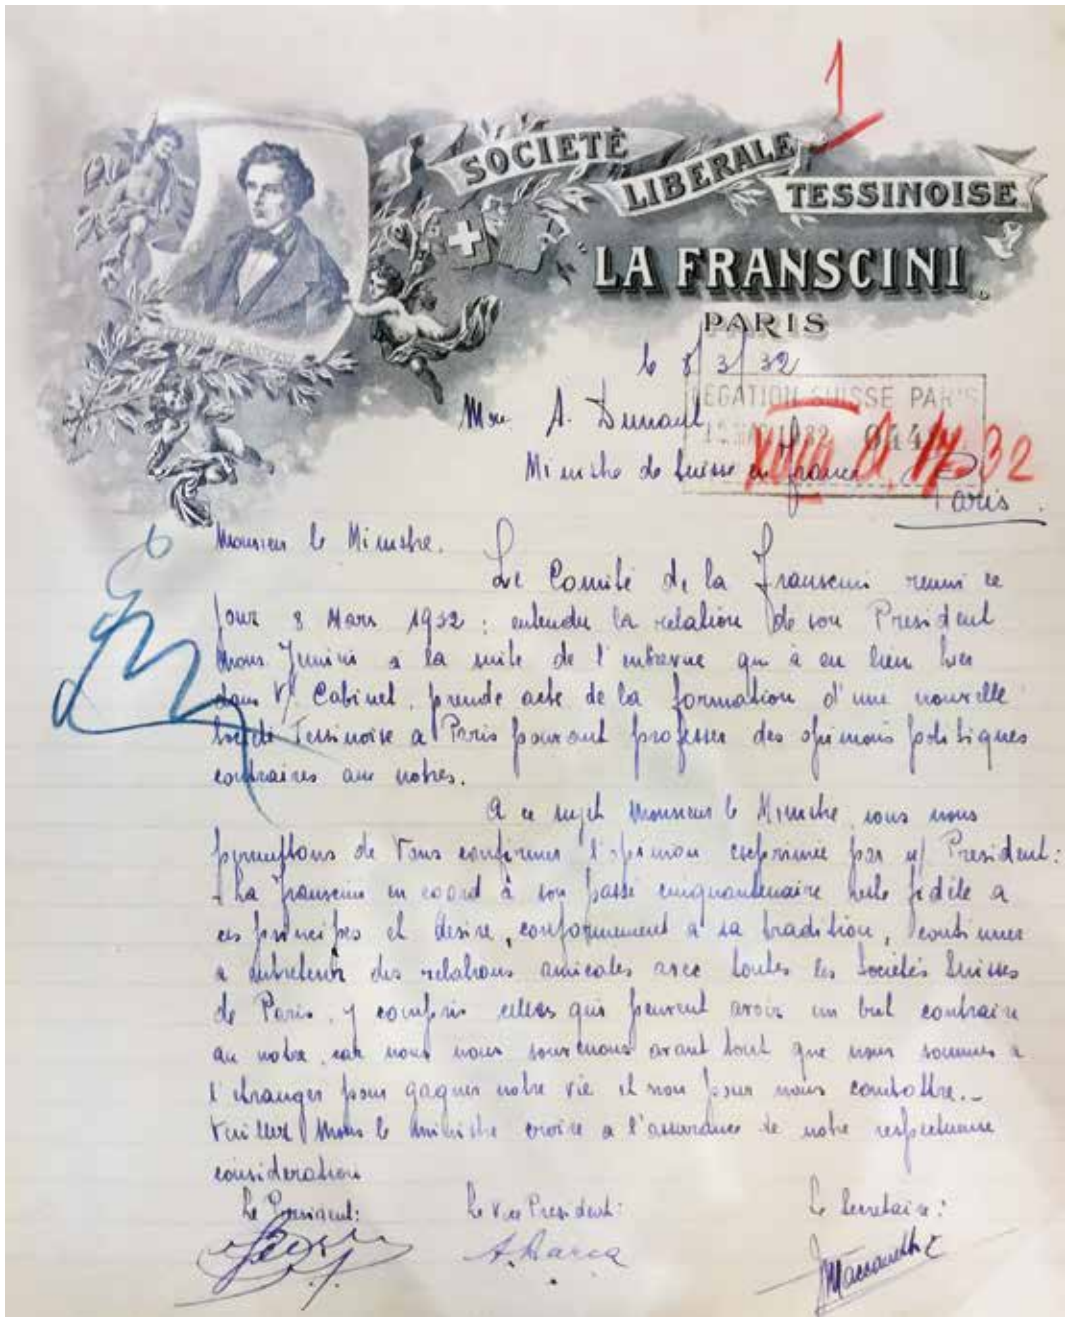 1
SOCIETÉ
LIBERALE
TESSINOISE
"LA FRANSCINI"
PARIS
le 8/3/32
LEGATION SUISSE PARIS
Mon A. Dunant
Ministre de Suisse en France
32
Paris.
Monsieur le Ministre.
Le Comité de la Franscini reuni ce
jour 8 Mars 1932 : entendu la relation de son President
Mons Junini a la suite de l'entrevue qui à eu lieu hier
dans V/ Cabinet, prende acte de la formation d'une nouvelle
Société Tessinoise a Paris pouvant professer des opinions politiques
contraires aux notres.
A ce sujet Monsieur le Ministre, nous nous
permettons de Vous confirmer l'opinion exprimée par n/ President:
La Franscini en accord à son passé cinquantenaire reste fidéle a
ces principes et desire, conformement a sa tradition, continuer
a entretenir des relations amicales avec toutes les Sociétés Suisses
de Paris, y compris celles qui peuvent avoir un but contraire
au notre, car nous nous souvenons avant tout que nous sommes a
l'etranger pour gagner notre vie et non pour nous combattre._
Veuillez Mons le ministre croire a l'assurance de notre respectueuse
consideration
Le President: Le Vice President: Le Secretaire:
A. Barca